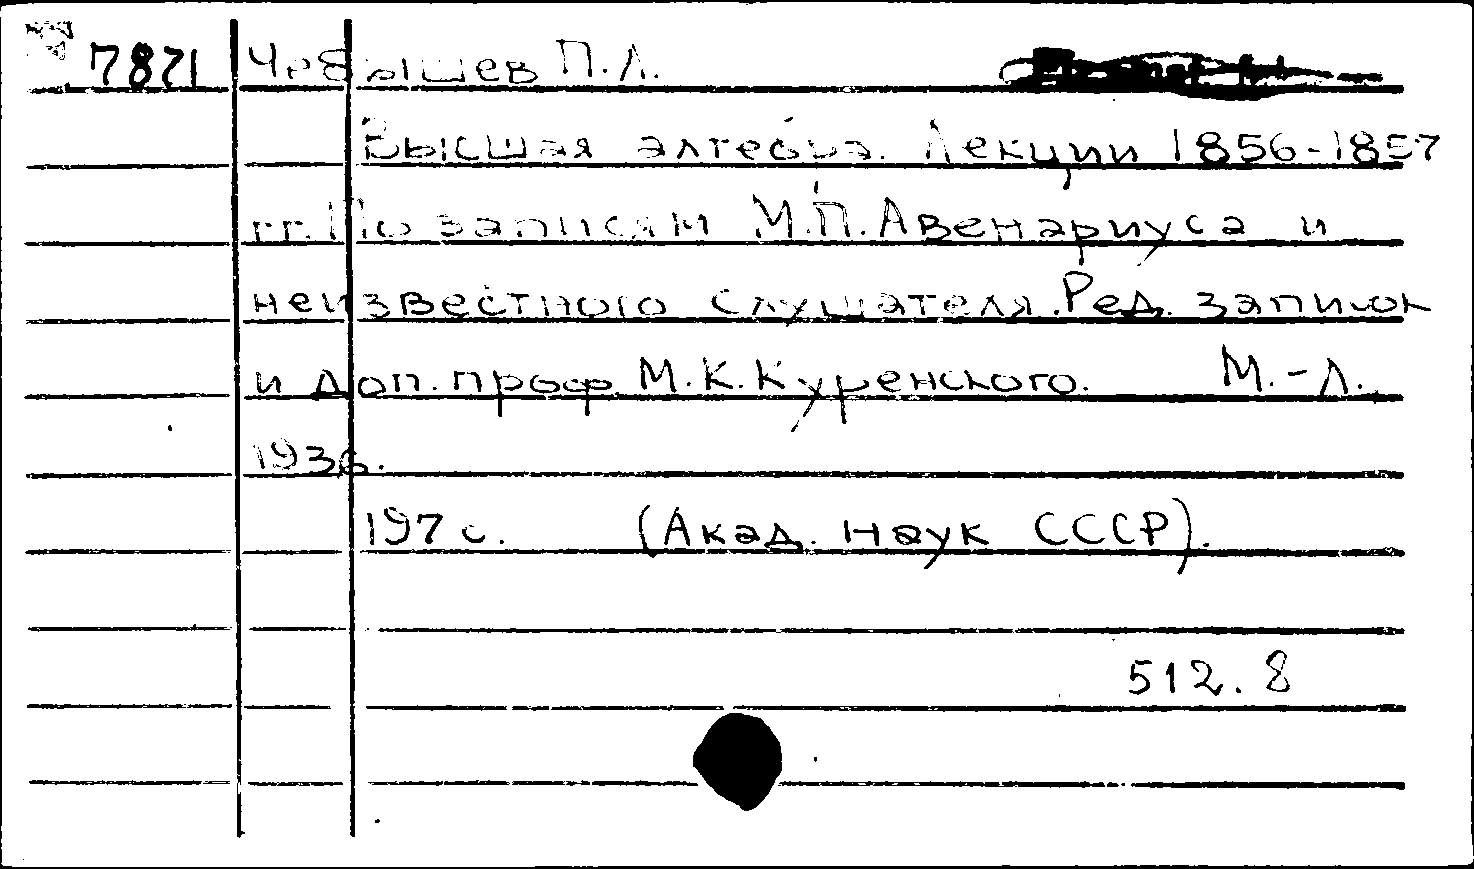 7871 Чебышев П.Л.
Высшая алгебра. Лекции 1856-1857
гг. По записям М.П. Авенариуса и
неизвестного слушателя. Ред. записок
и доп. проф. М.К. Куренского. М.-Л.
1936.
197 с. (Акад. наук СССР).
512.8